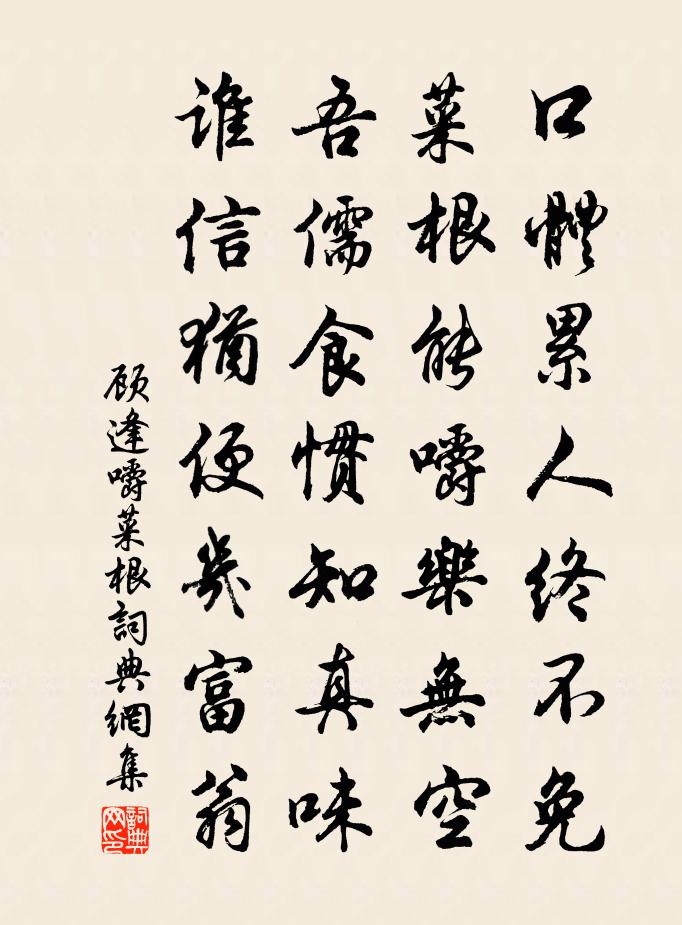 口體累人終不免
菜根能嚼樂無空
吾儒食慣知真味
誰信猶便幾富翁
顧逢嚼菜根詞典網集
詞典網印